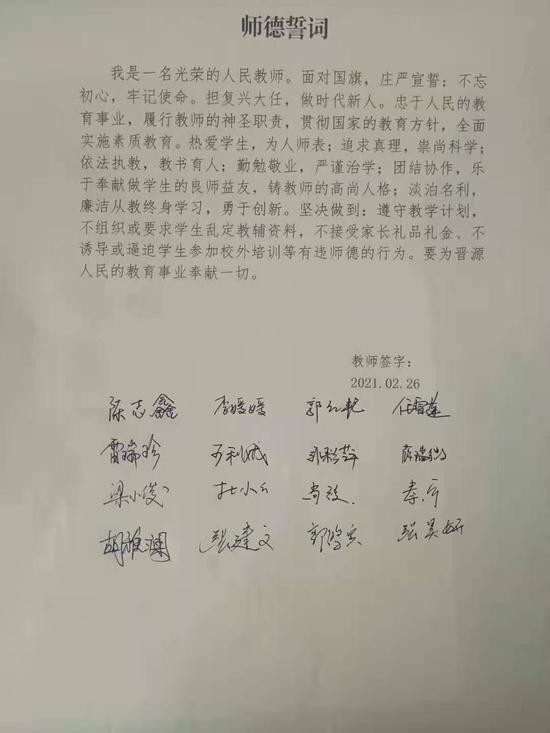 师德誓词
我是一名光荣的人民教师。面对国旗，庄严宣誓：不忘
初心，牢记使命。担复兴大任，做时代新人。忠于人民的教
育事业，履行教师的神圣职责，贯彻国家的教育方针，全面
实施素质教育。热爱学生，为人师表；追求真理，崇尚科学；
依法执教，教书育人；勤勉敬业，严谨治学；团结协作，乐
于奉献做学生的良师益友，铸教师的高尚人格；淡泊名利，
廉洁从教终身学习，勇于创新。坚决做到：遵守教学计划，
不组织或要求学生乱定教辅资料，不接受家长礼品礼金、不
诱导或逼迫学生参加校外培训等有违师德的行为。要为晋源
人民的教育事业奉献一切。
教师签字：
2021.02.26
陈志鑫 李媛媛 郭红艳 任雪莲
雷瑞珍
梁小俊 杜小云
胡雅澜 张建文 张昊妍